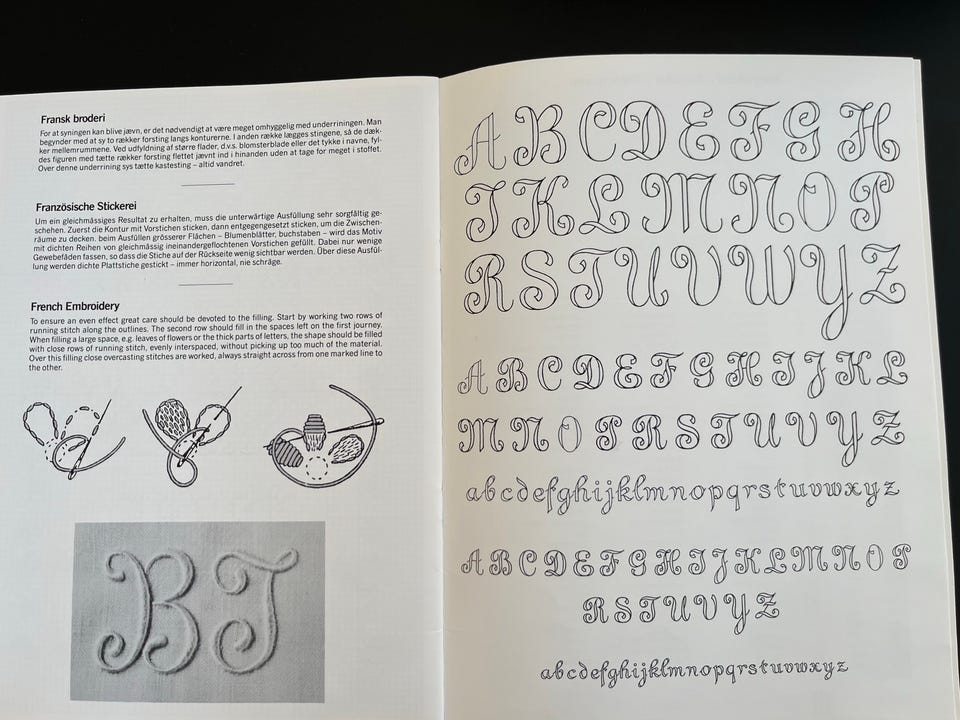 Fransk broderi
For at syningen kan blive jævn, er det nødvendigt at være meget omhyggelig med underriningen. Man
begynder med at sy to rækker forsting langs konturerne. I anden række lægges stingene, så de dæk-
ker mellemrummene. Ved udfyldning af større flader, d.v.s. blomsterblade eller det tykke i navne, fyl-
des figuren med tætte rækker forsting flettet jævnt ind i hinanden uden at tage for meget i stoffet.
Over denne underrining sys tætte kastesting – altid vandret.
Französische Stickerei
Um ein gleichmässiges Resultat zu erhalten, muss die unterwärtige Ausfüllung sehr sorgfältig ge-
schehen. Zuerst die Kontur mit Vorstichen sticken, dann entgegengesetzt sticken, um die Zwischen-
räume zu decken. beim Ausfüllen grösserer Flächen – Blumenblätter, buchstaben – wird das Motiv
mit dichten Reihen von gleichmässig ineinandergeflochtenen Vorstichen gefüllt. Dabei nur wenige
Gewebefäden fassen, so dass die Stiche auf der Rückseite wenig sichtbar werden. Über diese Ausfül-
lung werden dichte Plattstiche gestickt – immer horizontal, nie schräge.
French Embroidery
To ensure an even effect great care should be devoted to the filling. Start by working two rows of
running stitch along the outlines. The second row should fill in the spaces left on the first journey.
When filling a large space, e.g. leaves of flowers or the thick parts of letters, the shape should be filled
with close rows of running stitch, evenly interspaced, without picking up too much of the material.
Over this filling close overcasting stitches are worked, always straight across from one marked line to
the other.
BT
ABCDEFGH
IKLMNOP
RSTUVWYZ
ABCDEFGHIJKL
MNOPRSTUVYZ
abcdefghijklmnopqrstuvwxyz
ABCDEFGHIJKLMNOP
RSTUVYZ
abcdefghijklmnopqrstuvwxyz